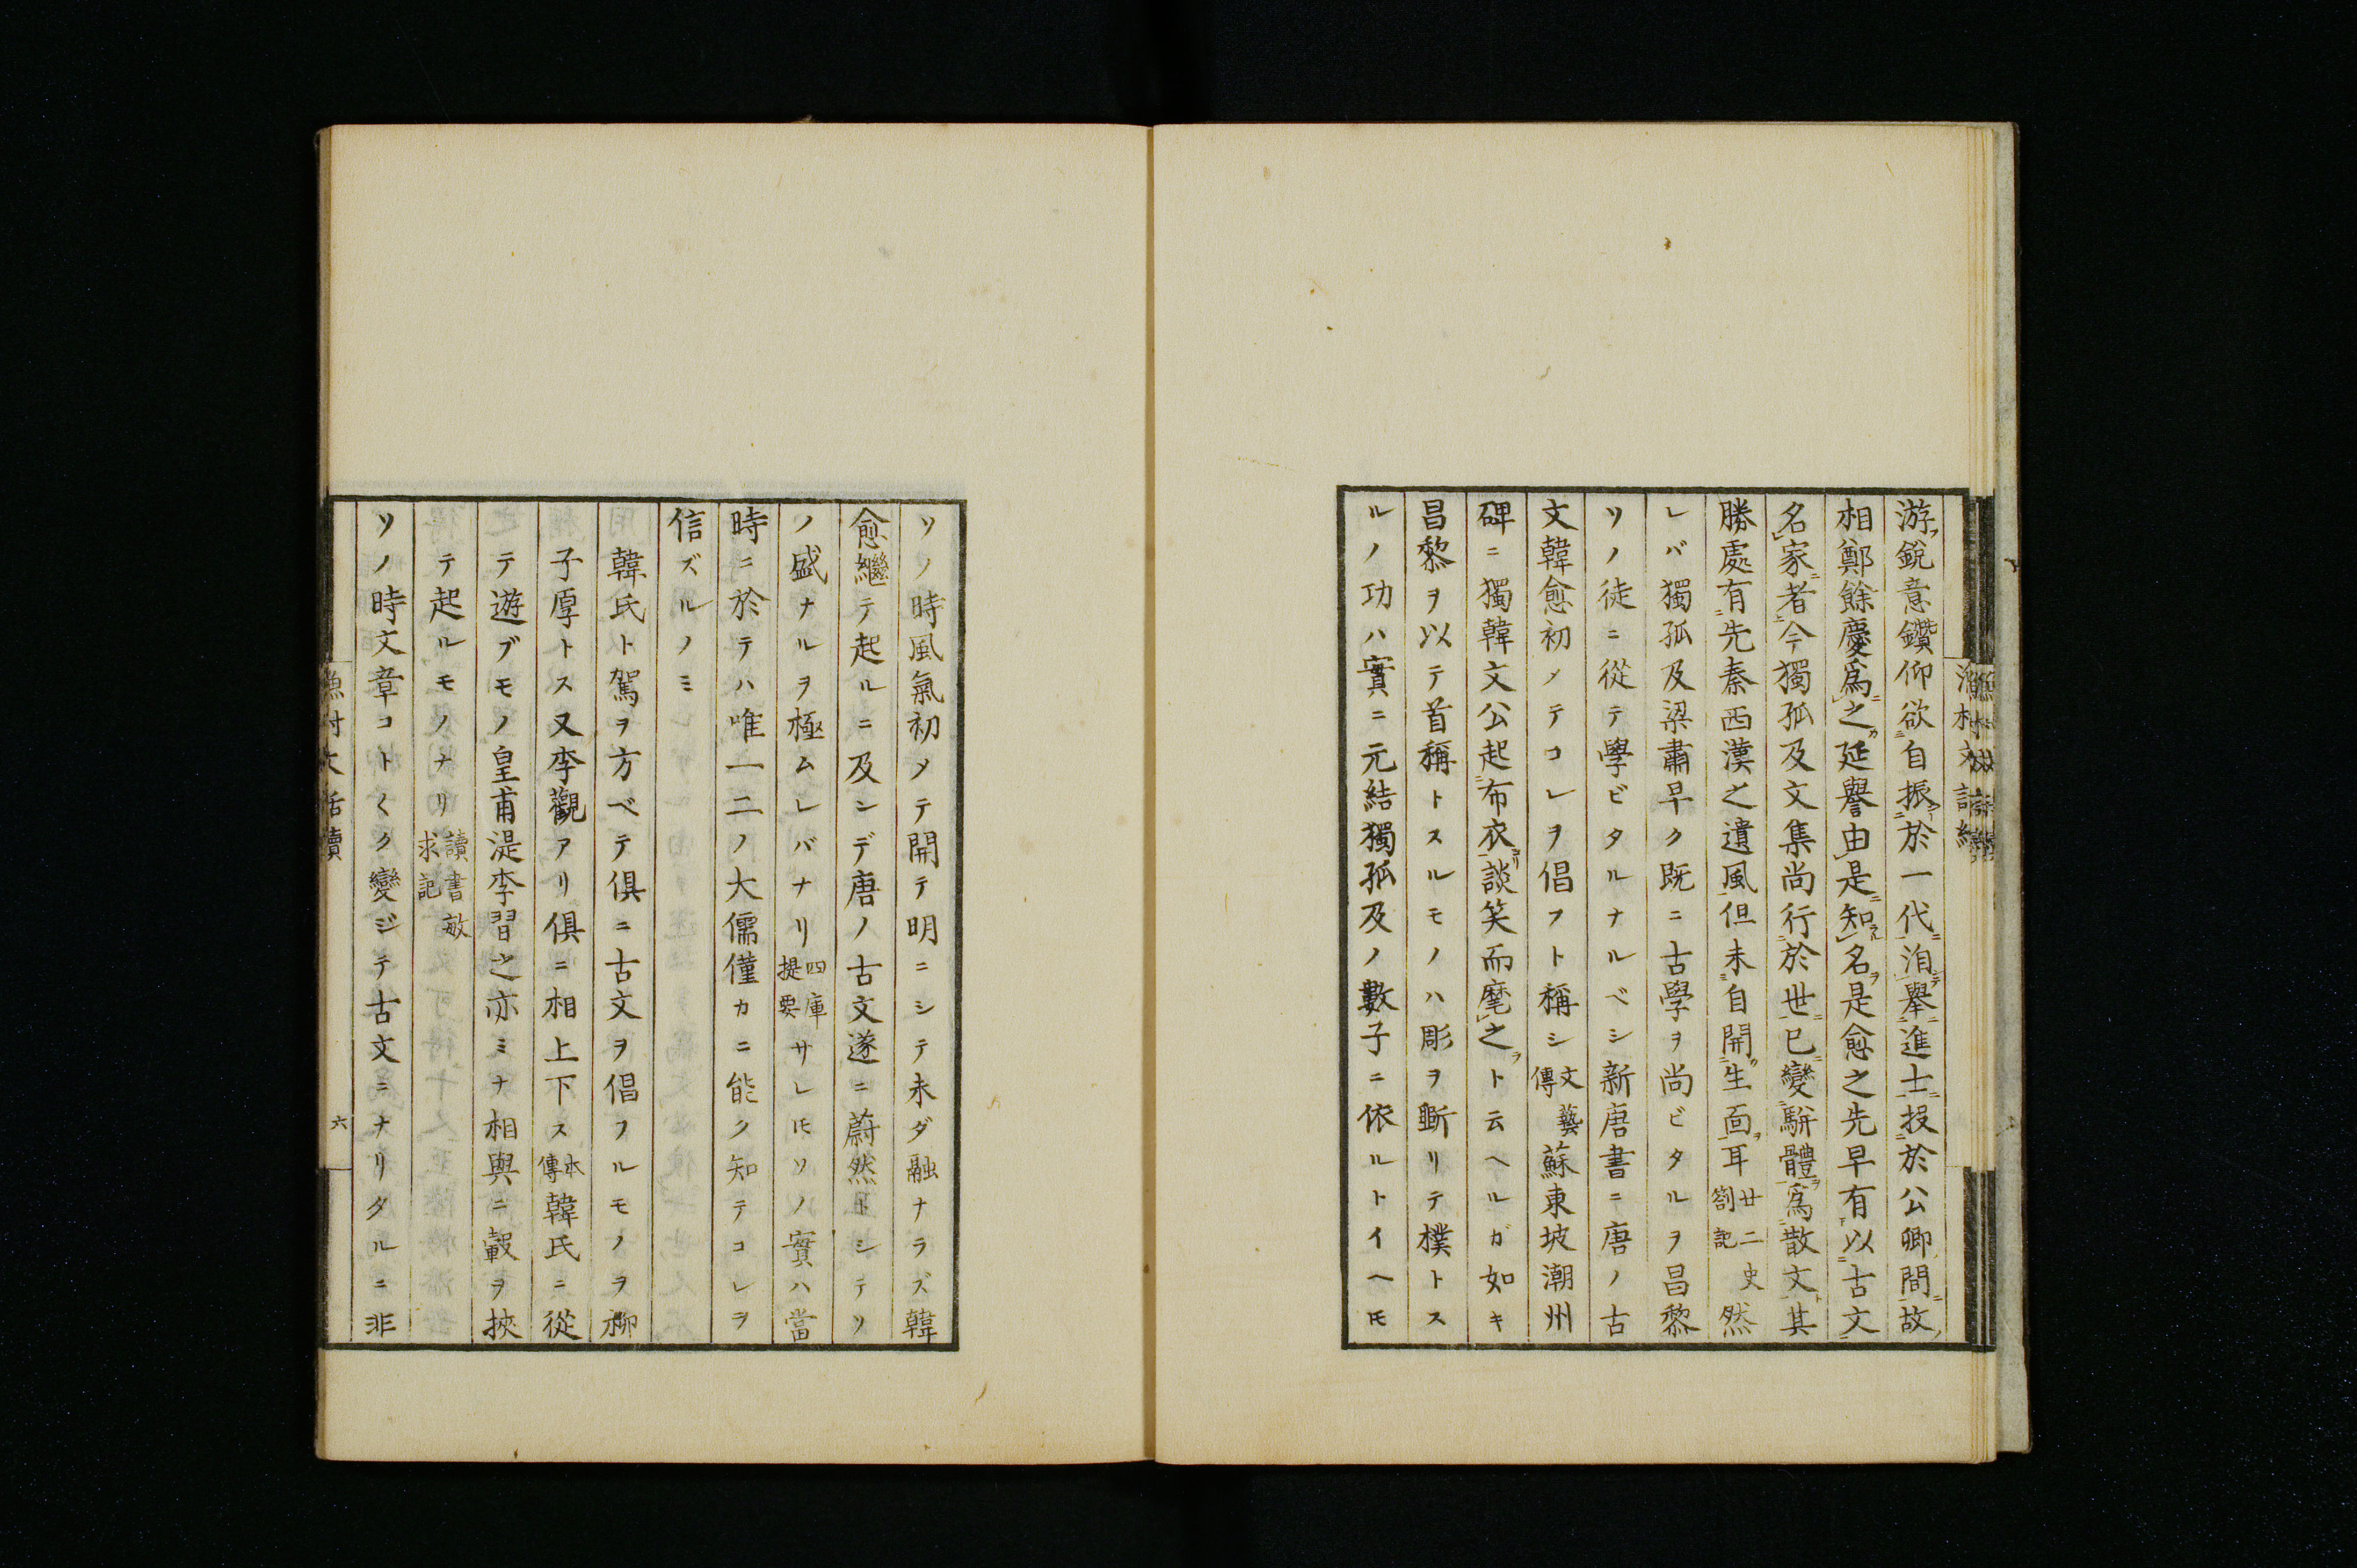 游鋭意鑽仰欲自振於一代洎舉進士投於公卿間故
相鄭餘慶爲之延譽由是知名是愈之先早有以古文
名家者今獨孤及文集尚行於世已變駢體爲散文其
勝處有先秦西漢之遺風但未自開生面耳廿二史劄記然
レバ獨孤及梁肅早ク既ニ古學ヲ尚ビタルヲ昌黎
ソノ徒ニ從テ學ビタルナルベシ新唐書ニ唐ノ古
文韓愈初メテコレヲ倡フト稱シ文藝傳蘇東坡潮州
碑ニ獨韓文公起布衣談笑而麾之ト云ヘルガ如キ
昌黎ヲ以テ首稱トスルモノハ彫ヲ斲リテ樸トス
ルノ功ハ實ニ元結獨孤及ノ數子ニ依ルトイヘ𪜈
ソノ時風氣初メテ開テ明ニシテ未ダ融ナラズ韓
愈繼テ起ルニ及ンデ唐ノ古文遂ニ蔚然トシテソ
ノ盛ナルヲ極ムレバナリ四庫提要サレ𪜈ソノ實ハ當
時ニ於テハ唯一二ノ大儒僅カニ能ク知テコレヲ
信ズルノミ
韓氏ト駕ヲ方ベテ俱ニ古文ヲ倡フルモノヲ柳
子厚トス又李觀アリ俱ニ相上下ス本傳韓氏ニ從
テ遊ブモノ皇甫湜李習之亦ミナ相與ニ轂ヲ挾
テ起ルモノナリ讀書敏求記
ソノ時文章コト〱ク變ジテ古文ニナリタルニ非
漁村文話續
六